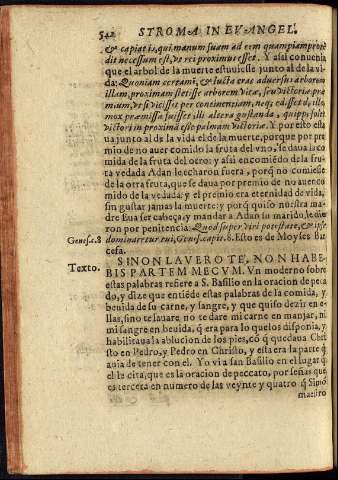 542 STROMA IN EVANGEL.
& capiat is, qui manum suam ad rem quampiam prote
dit necessum est, vt rei proximus esset. Y asi conuenia
que el arbol de la muerte estuuiesse junto al de la vi-
da: Quoniam certamē, & lucta erat aduersus arborem
illam, proximam stetisse arborem vitæ, seu victoriæ præ
mium, vt si vicisset per continentiam, neq; edisset d, illo
mox præmissa fuisset illi altera gustanda, quippe fuisset
victori in proxima esse palmam victoriæ. Y por esto esta
ua junto al ds la vida el de la muerte, porque por pre
mio de no auer comido la fruta del vno, se daua la co
mida de la fruta del otro: y asi en comiēdo de la fru-
ta vedada Adan le echaron fuera, porq̄ no comiesse
de la otra fruta, que se daua por premio de no auer co
mido de la vedada: y el premio era eternidad de vida,
sin gustar jamas la muerte: y porq̄ quiso nuestra ma-
dre Eua ser cabeça, y mandar a Adan su marido, le die
ron por penitencia: Quod super viri potestate, & ipse
Genes. c. 8 dominaretur eui, Genes. capit. 8. Esto es de Moyses Bar
cefa.
Texto. SI NON LAVERO TE, NON HABE-
BIS PARTEM MECVM. Vn moderno sobre
estas palabras refiere a S. Basilio en la oracion de peca
do, y dize que entiēde estas palabras de la comida, y
beuida de su carne, y sangre, y que quiso dezir en e-
llas, sino te lauare, no te dare mi carne en manjar, ni
mi sangre en beuida, q̄ era para lo que los disponia, y
habilitaua la ablucion de los pies, cō q̄ quedaua Chri
sto en Pedro, y Pedro en Christo, y esta era la parte q̄
auia de tener con el. Yo vi a san Basilio en el lugar q̄
el le cita, que es la oracion de peccato, por señas que
es tercera en numero de las veynte y quatro q̄ Simō
maestro